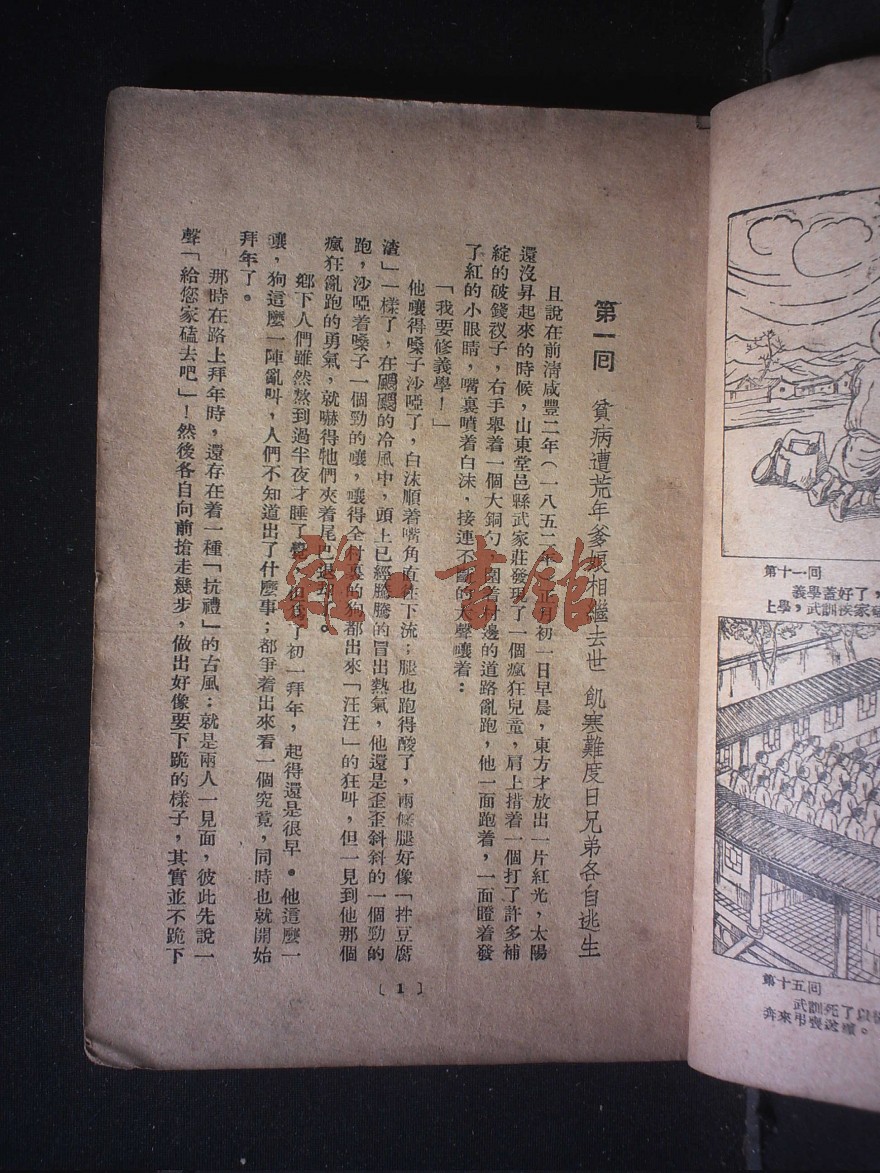 第一回 貧病遭荒年爹娘相繼去世 飢寒難度日兄弟各自逃生
且說在前清咸豐二年(一八五二年)正月初一日早晨,東方才放出一片紅光,太陽
還沒昇起來的時候,山東堂邑縣武家莊發現了一個瘋狂兒童,肩上揹着一個打了許多補
綻的破錢衩子,右手舉着一個大銅勺,圍着村邊的道路亂跑,他一面跑着,一面瞪着發
了紅的小眼睛,嘴裏噴着白沫,接連不斷的大聲嚷着:
「我要修義學!」
他嚷得嗓子沙啞了,白沫順着嘴角直往下流;腿也跑得酸了,兩條腿好像「拌豆腐
渣」一樣了,在颼颼的冷風中,頭上已經騰騰的冒出熱氣,他還是歪歪斜斜的一個勁的
跑,沙啞着嗓子一個勁的嚷,嚷得全村裏的狗都出來「汪汪」的狂叫,但一見到他那個
瘋狂亂跑的勇氣,就嚇得牠們夾着尾巴退却。
鄉下人們雖然熬到過半夜才睡了覺,但爲了初一拜年,起得還是很早。他這麼一
嚷,狗這麼一陣亂叫,人們不知道出了什麼事;都爭着出來看一個究竟,同時也就開始
拜年了。
那時在路上拜年時,還存在着一種「抗禮」的古風;就是兩人一見面,彼此先說一
聲「給您家磕去吧」!然後各自向前搶走幾步,做出好像要下跪的樣子,其實並不跪下
〔1〕
雜·書館
第十一回
義學蓋好了,
上學,武訓挨家
第十五回
武訓死了以
奔來弔喪送殯。